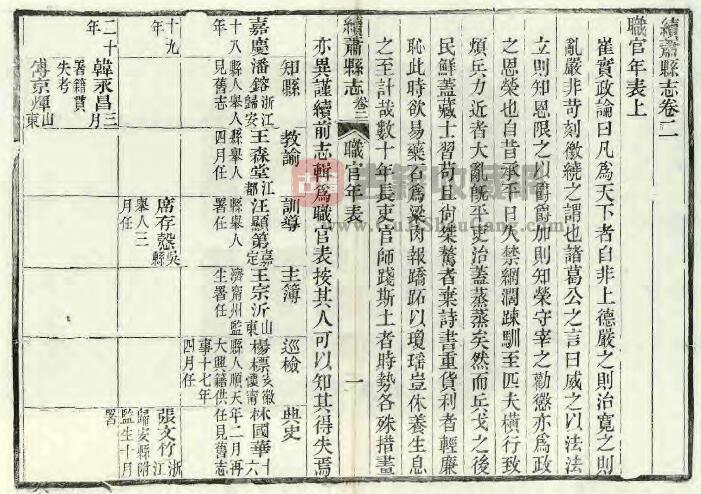 續蕭縣志卷二
職官年表上
崔實政論曰凡為天下者自非上德嚴之則治寬之則
亂嚴非苛刻徽繞之謂也諸葛公之言曰威之以法法
立則知恩限之以爵爵加則知榮守宰之勸懲亦為政
之恩榮也自昔承平日久禁網濶踈馴至匹夫橫行致
煩兵力近者大亂旣平吏治蓋蒸蒸矣然而兵戈之後
民鮮蓋藏士習苟且尙桀驁者棄詩書重貨利者輕廉
恥此時欲易藥石為粱肉報蹻跖以瓊瑤豈休養生息
之至計哉數十年長吏官師踐斯土者時勢各殊措畫
亦異謹續前志輯為職官表按其人可以知其得失焉
續蕭縣志 卷二 職官年表 一
知縣 教諭 訓導 主簿 巡檢 典史
嘉慶十八年
潘鎔浙江歸安縣人舉人見舊志
王森堂江都縣舉人四月任
汪顯第嘉定縣舉人署任
王宗沂山東濟甯州監生署任
楊標安徽懷甯縣人順天大興籍供事十七年四月任
林國華十六年二月再任見舊志
十九年
席存慤吳縣舉人三月任
張文竹浙江歸安縣附監生十月署
二十年
韓永昌三月署籍貫失考
傅京煇山東